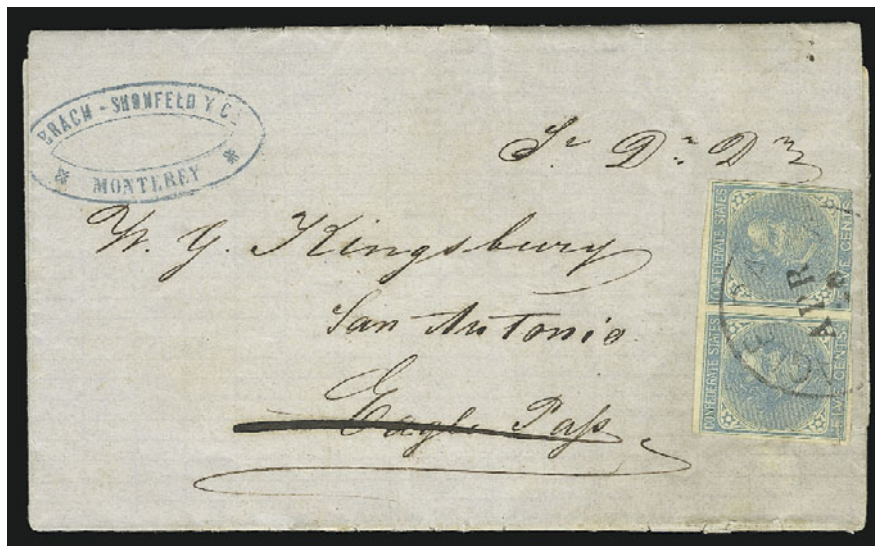 BRACH - SHONFELD Y Cª
* MONTEREY *
Sr Dn Dn
W. G. Kingsbury
San Antonio
Eagle Pass
CONFEDERATE STATES
FIVE CENTS
CONFEDERATE STATES
FIVE CENTS
APR